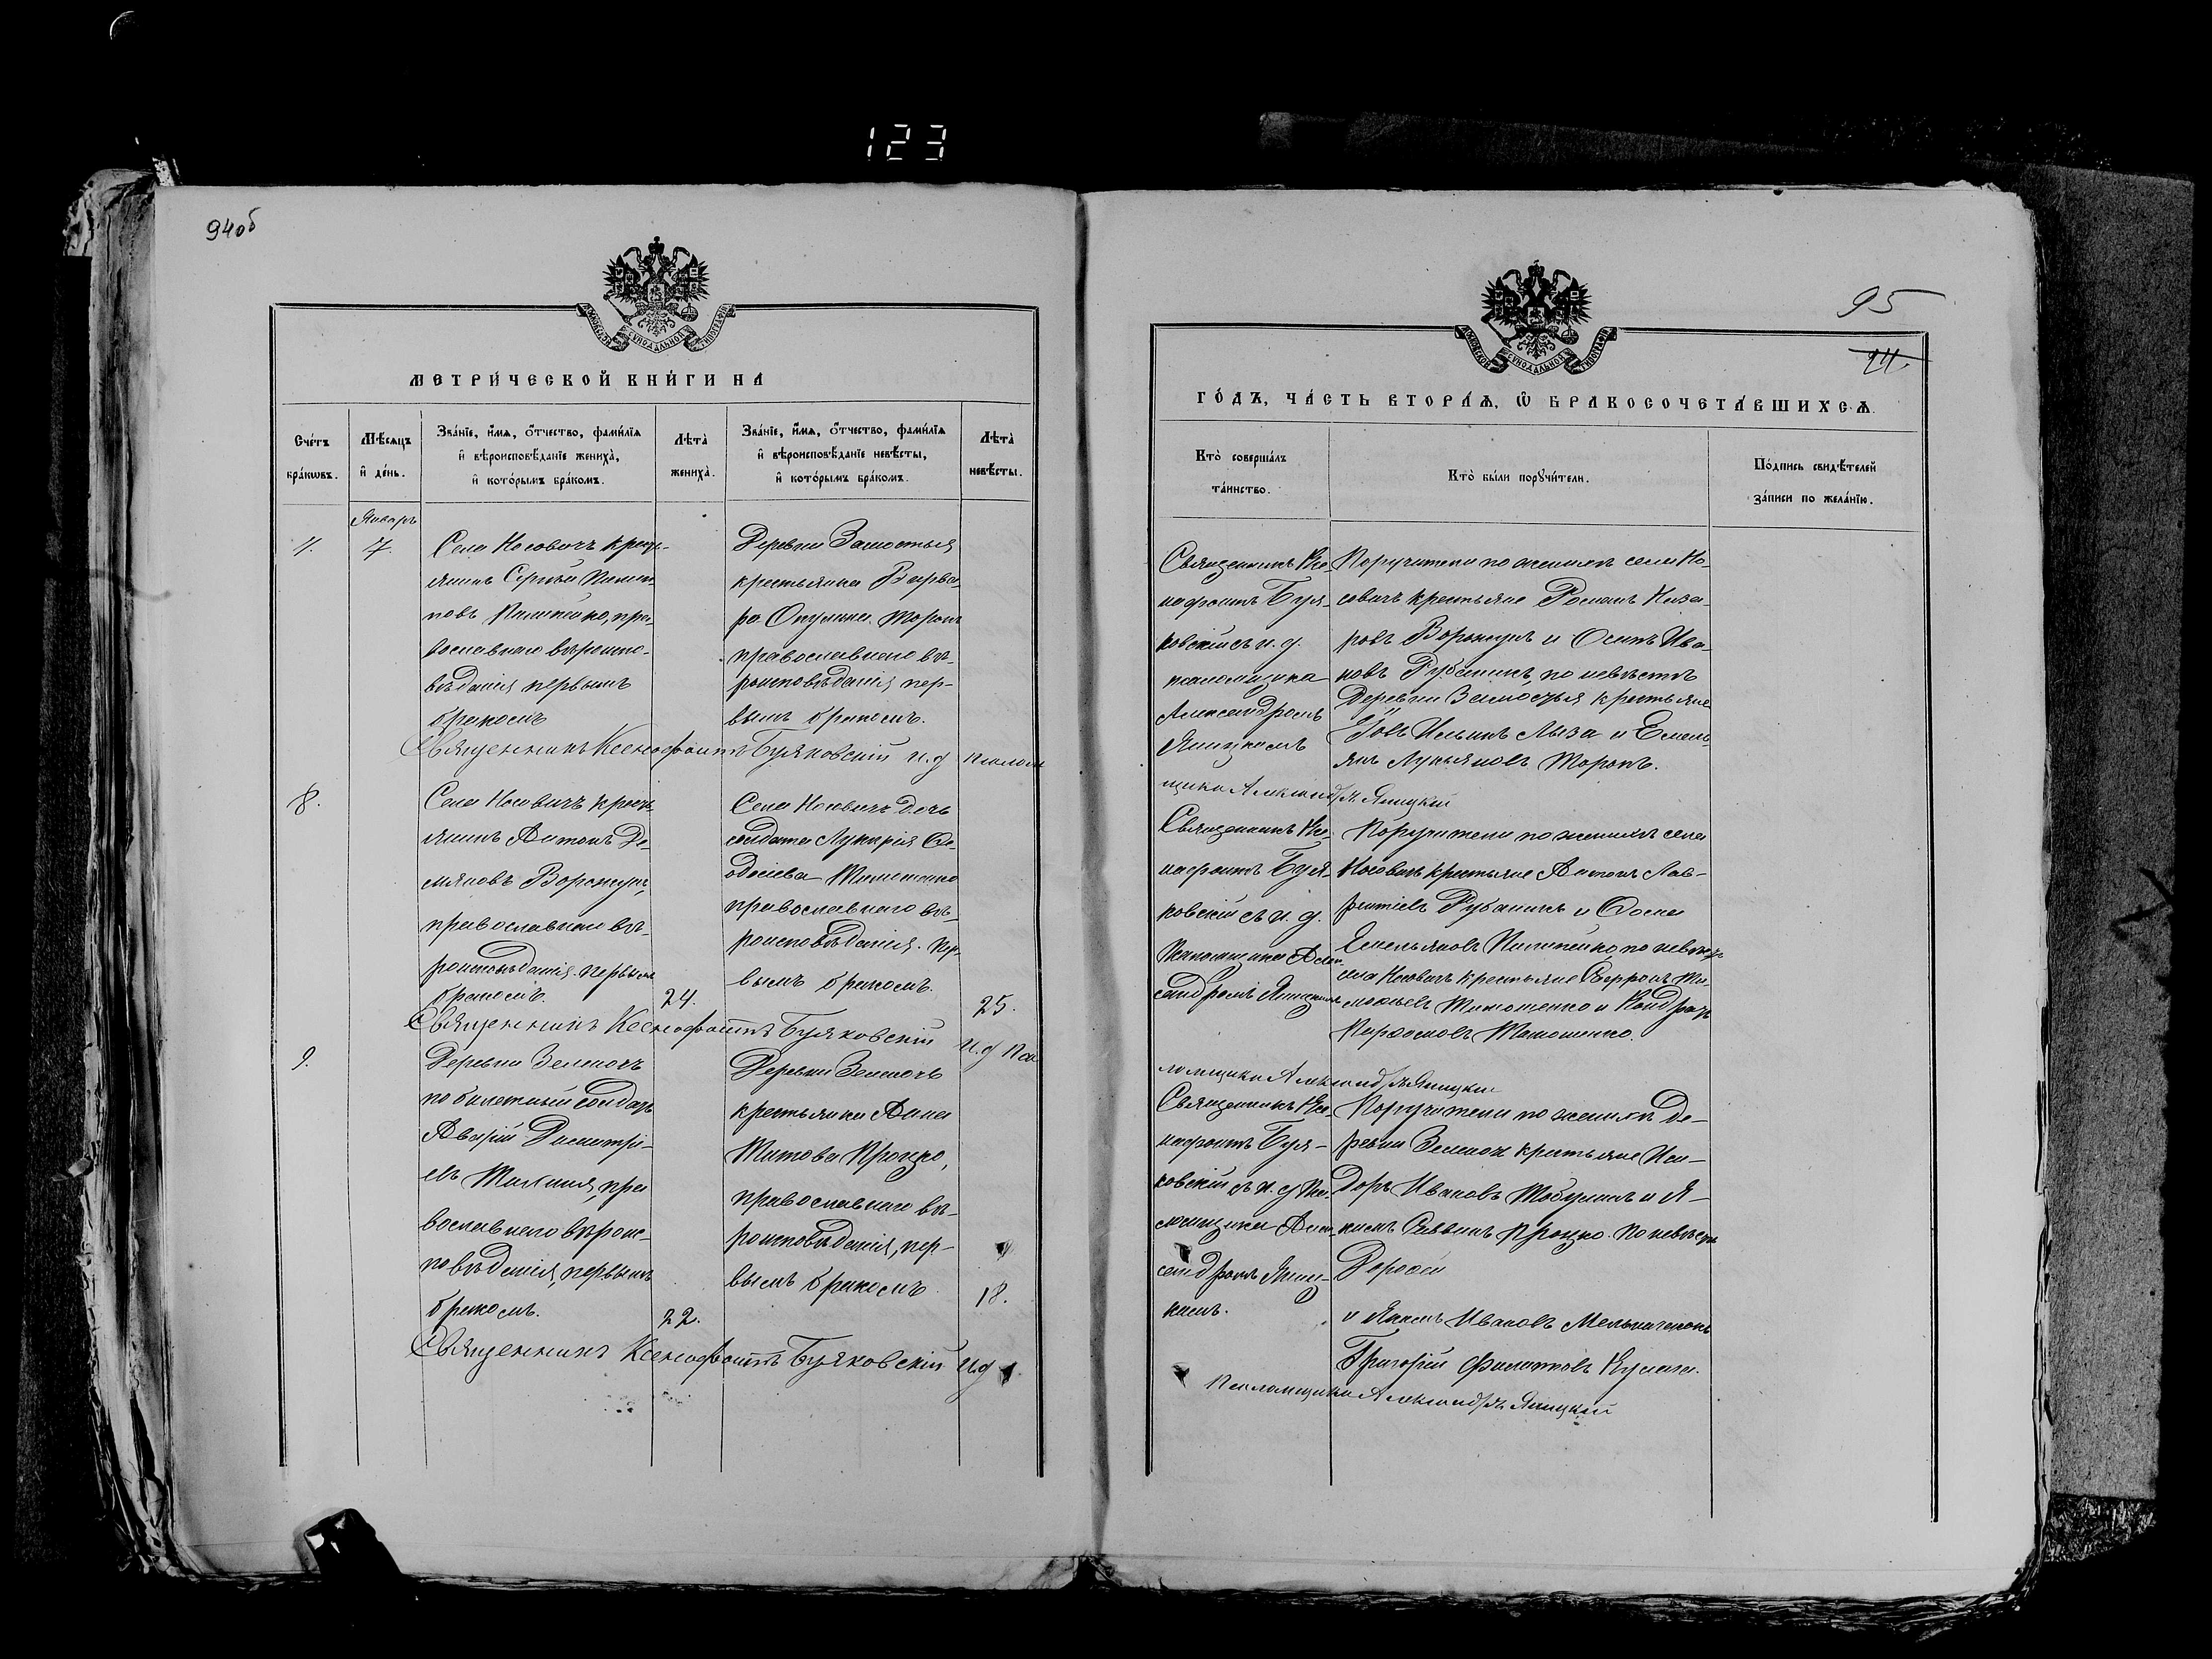 123
94об
МОСКОВСКОЙ СѴНОДАЛЬНОЙ ТИПОГРАФІИ
МЕТРИ́ЧЕСКОЙ КНИ́ГИ НА
Сче́тъ бра́кѡвъ.
Мѣ́сяцъ и҆ де́нь.
Зва́нїе, и҆́мѧ, ѻ҆́тчество, фами́лїѧ и҆ вѣроисповѣ́данїе жениха̀, и҆ кото́рымъ бра́комъ.
Лѣта̀ жениха̀.
Зва́нїе, и҆́мѧ, ѻ҆́тчество, фами́лїѧ и҆ вѣроисповѣ́данїе невѣ́сты, и҆ кото́рымъ бра́комъ.
Лѣта̀ невѣ́сты.
Январь
7.
Села Носовичъ кресть-
янинъ Сергѣй
повъ Пилипейко, пра-
вославнаго вѣроиспо-
вѣданія первымъ
бракомъ
Деревни Замостья
крестьянка Варва-
ра Торопъ
православнаго вѣ-
роисповѣданія, пер-
вымъ бракомъ.
Священникъ Ксенофонтъ Буяковскій и. д. псалом
8.
Села Носовичъ кресть-
янинъ Антонъ Де-
мяновъ Воронцъ,
православнаго вѣ-
роисповѣданія. первымъ
бракомъ.
24.
Села Носовичъ дочь
солдата Лукерія Ѳе-
одосіева Тимошенко
православнаго вѣ-
роисповѣданія. пер-
вымъ бракомъ.
25.
Священникъ Ксенофонтъ Буяковскій и. д. Пса
9.
Деревни
по билетный солдатъ
Димитрі-
евъ пра
вославнаго вѣроис-
повѣданія, первымъ
бракомъ.
22.
Деревни
крестьянка Анна
Титова Процко,
православнаго вѣ-
роисповѣданія, пер-
вымъ бракомъ.
18.
Священникъ Ксенофонтъ Буяковскій и.д
95
МОСКОВСКОЙ СѴНОДАЛЬНОЙ ТИПОГРАФІИ
ГО́ДЪ, ЧА́СТЬ ВТОРА́Ѧ, Ѽ БРАКОСОЧЕТА́ВШИХСѦ.
Кто̀ соверша́лъ та́инство.
Кто̀ бы́ли порꙋчи́тели.
По́дпись свидѣ́телей за́писи по жела́нїю.
Священникъ Ксе-
нофонтъ Буя-
ковскій съ и. д.
псаломщика
Александромъ
Яницкимъ
Поручители по женихѣ села Но-
совичъ крестьяне Романъ Наза-
ровъ и Осипъ Ива-
новъ Рубаникъ, по невѣстѣ
Деревни Замостья крестьяне
Іовъ Ильинъ Лыза и Емель-
янъ Лукьяновъ Торопъ.
щика Александръ Яницкій
Священникъ Ксе-
нофонтъ Буя-
ковскій съ и. д.
Псаломщика Алек-
сандромъ Яницкимъ
Поручители по женихѣ села
Носовичъ крестьяне Антонъ Лав-
рентіевъ Рубаникъ и Ѳома
Емельяновъ Пилипейко, по невѣстѣ
села Носовичъ крестьяне
Тимошенко и Кондратъ
Тимошенко.
ломщика Александръ Яницкій
Священникъ Ксе-
нофонтъ Буя-
ковскій съ и. д. Пса-
ломщика Алек-
сандромъ Яниц-
кимъ.
Поручители по женихѣ де-
ревни крестьяне Иси-
доръ Ивановъ и Я-
кимъ Процко. По невѣстѣ
Дорофей
и Якимъ Ивановъ
Григорій Филиповъ
Псаломщика Александръ Яницкій